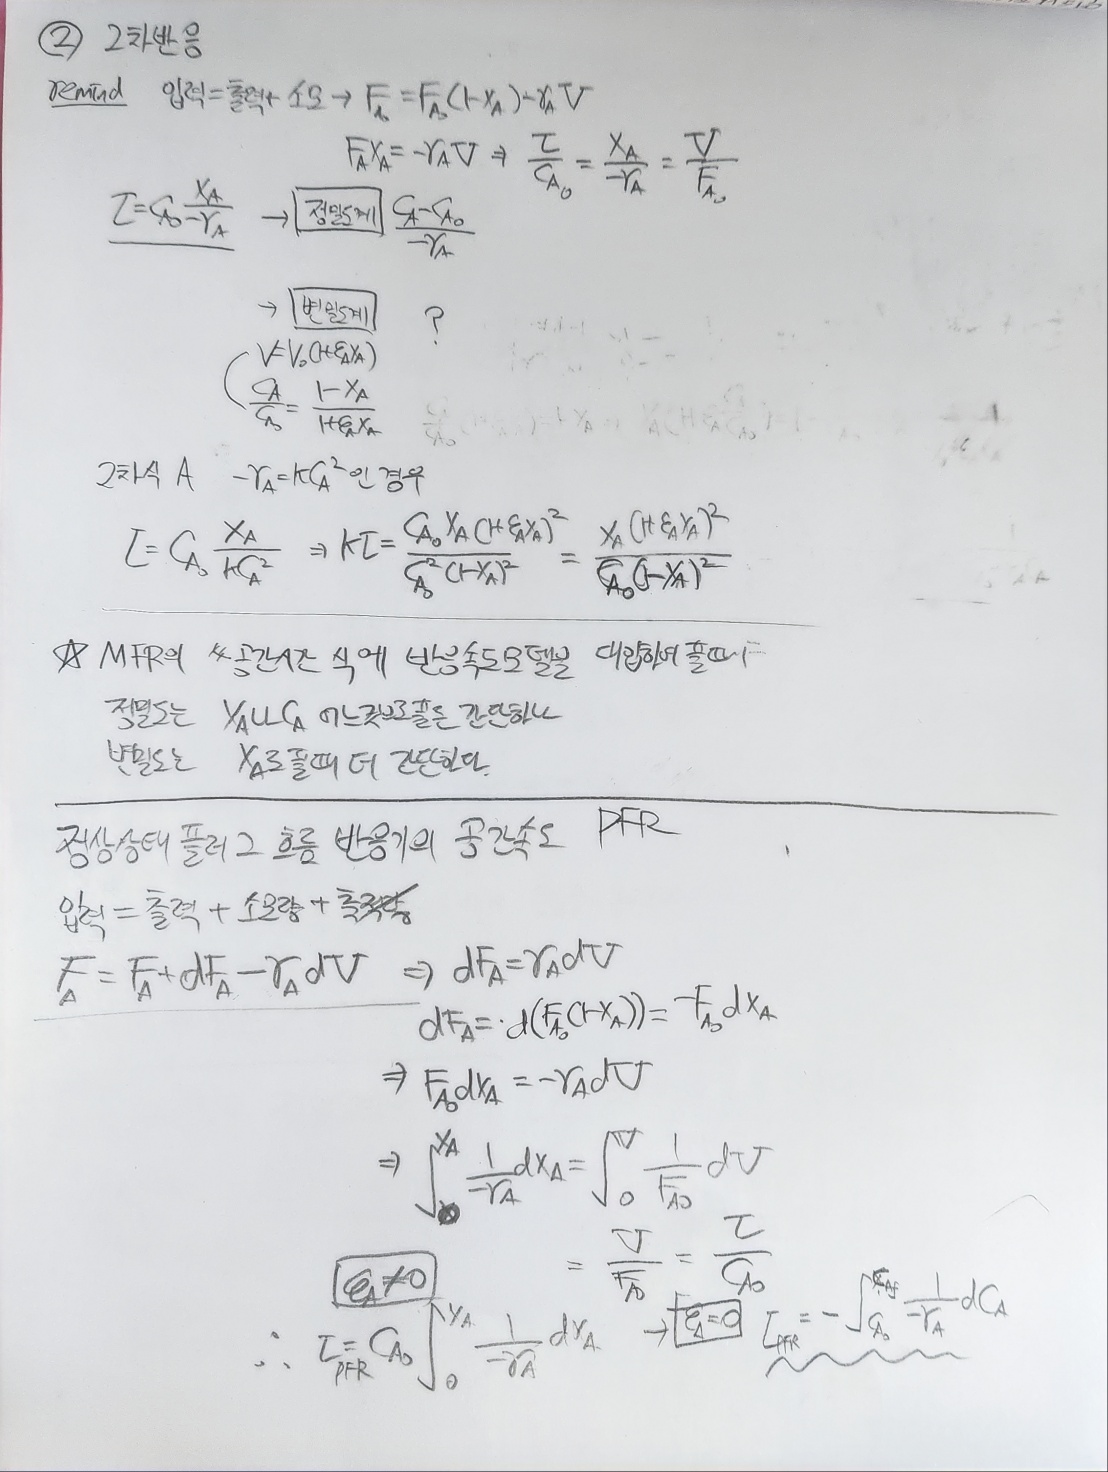 ② 2차반응
remind 입력=출력+소모 → F_A₀ = F_A₀(1-X_A) - r_A V
F_A X_A = -r_A V ⇒ τ/C_A₀ = X_A/-r_A = V/F_A₀
τ = C_A₀ X_A/-r_A → 정밀도계 C_A-C_A₀/-r_A
→ 변밀도계 ?
V=V₀(1+ε_A X_A)
C_A/C_A₀ = 1-X_A/1+ε_A X_A
2차식 A -r_A = kC_A² 인 경우
τ = C_A₀ X_A/kC_A² ⇒ kτ = C_A₀ X_A (1+ε_A X_A)²/C_A₀² (1-X_A)² = X_A (1+ε_A X_A)²/C_A₀ (1-X_A)²
☆ MFR의 공간시간 식에 반응속도모델을 대입하여 풀때는
정밀도는 X_A나 C_A 어느것으로 풀든 간단하나
변밀도는 X_A로 풀때 더 간단하다.
정상상태 플러그 흐름 반응기의 공간속도 PFR
입력 = 출력 + 소모량 + 축적량
F_A = F_A + dF_A - r_A dV ⇒ dF_A = r_A dV
dF_A = d(F_A₀(1-X_A)) = -F_A₀ dX_A
⇒ F_A₀ dX_A = -r_A dV
⇒ ∫₀^X_A 1/-r_A dX_A = ∫₀^V 1/F_A₀ dV
= V/F_A₀ = τ/C_A₀
ε_A ≠ 0
∴ τ_PFR = C_A₀ ∫₀^X_A 1/-r_A dX_A → ε_A = 0 τ_PFR = -∫_C_A₀^C_Af 1/-r_A dC_A